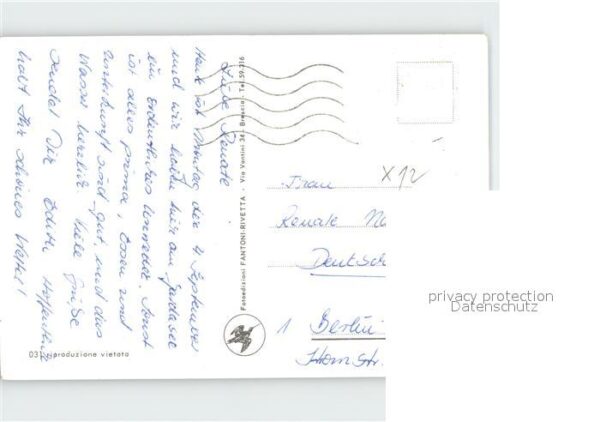 Liebe Renate
Heute ist Montag der 4 September
und wir haben hier am Gardasee
ein Unwetter. Sonst
ist alles prima, Essen und
Unterkunft sind gut, und das
Wasser herrlich. Viele Grüße
sendet Dir Edith Hoffentlich
habt Ihr schönes Wetter!
031 riproduzione vietata
Fotoedizioni FANTONI-RIVETTA - Via Vantini 34 - Brescia - Tel. 59.316
X12
Frau
Renate
Deutsch
1 Berlin
Horn str.
privacy protection
Datenschutz